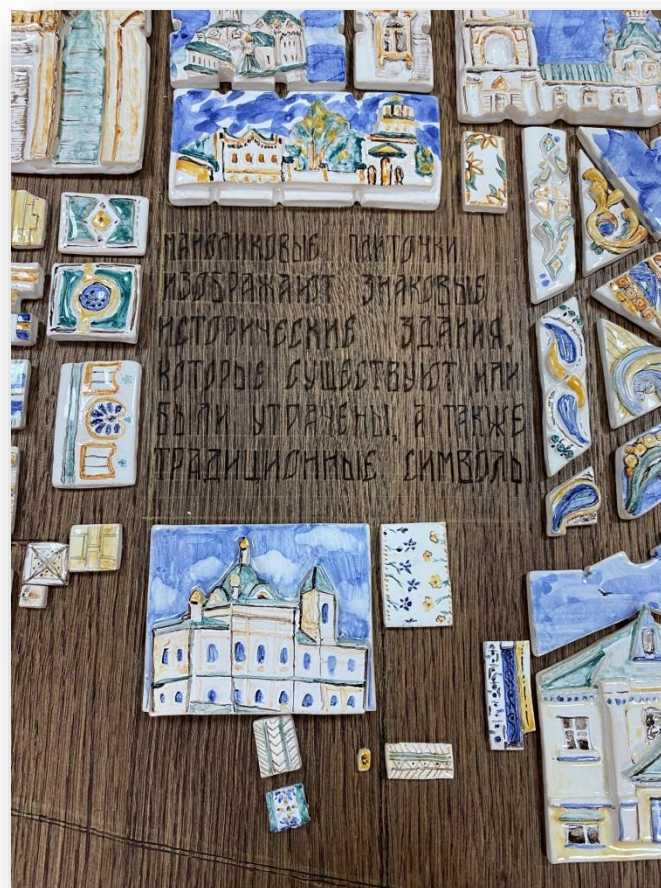 МАЙОЛИКОВЫЕ ПЛИТОЧКИ
ИЗОБРАЖАЮТ ЗНАКОВЫЕ
ИСТОРИЧЕСКИЕ ЗДАНИЯ,
КОТОРЫЕ СУЩЕСТВУЮТ ИЛИ
БЫЛИ УТРАЧЕНЫ, А ТАКЖЕ
ТРАДИЦИОННЫЕ СИМВОЛЫ